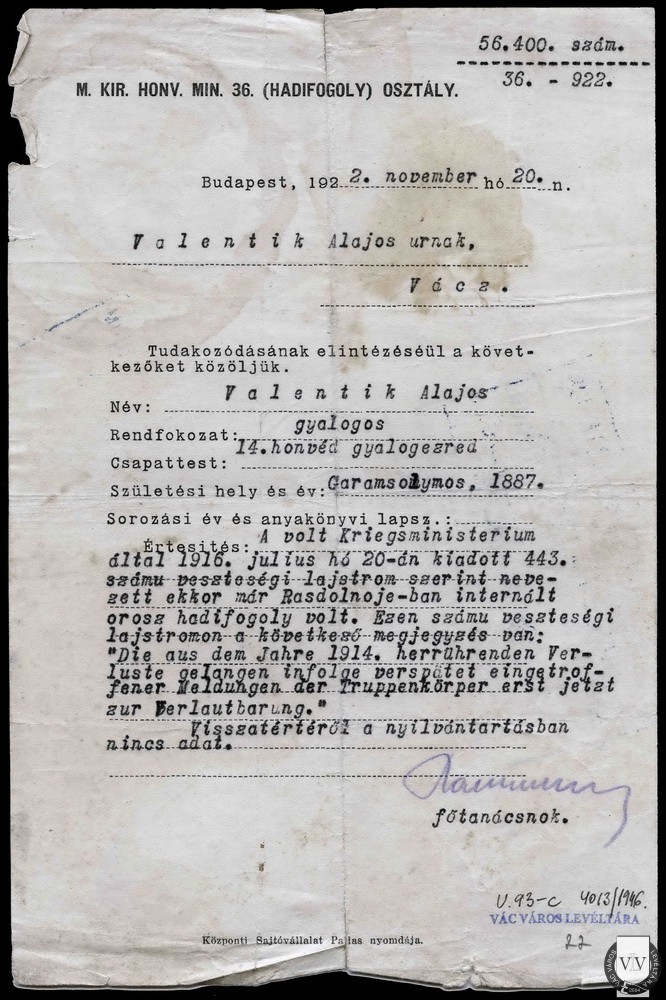 56.400. szám.
36. - 922.
M. KIR. HONV. MIN. 36. (HADIFOGOLY) OSZTÁLY.
Budapest, 1922. november hó 20. n.
Valentik Alajos urnak,
Vácz.
Tudakozódásának elintézéséül a követ-
kezőket közöljük.
Név: Valentik Alajos
Rendfokozat: gyalogos
Csapattest: 14.honvéd gyalogezred
Születési hely és év: Garamsolymos, 1887.
Sorozási év és anyakönyvi lapsz.:
Értesítés: A volt Kriegsministerium
által 1916. július hó 20-án kiadott 443.
számu veszteségi lajstrom szerint neve-
zett ekkor már Rasdolnoje-ban internált
orosz hadifogoly volt. Ezen számu veszteségi
lajstromon a következő megjegyzés van:
"Die aus dem Jahre 1914. herrührenden Ver-
luste gelangen infolge verspätet eingetrof-
fener Meldungen der Truppenkörper erst jetzt
zur Verlautbarung."
Visszatértéről a nyilvántartásban
nincs adat.
főtanácsnok.
V.93-c 4013/1946.
VÁC VÁROS LEVÉLTÁRA
22
Központi Sajtóvállalat Pallas nyomdája.